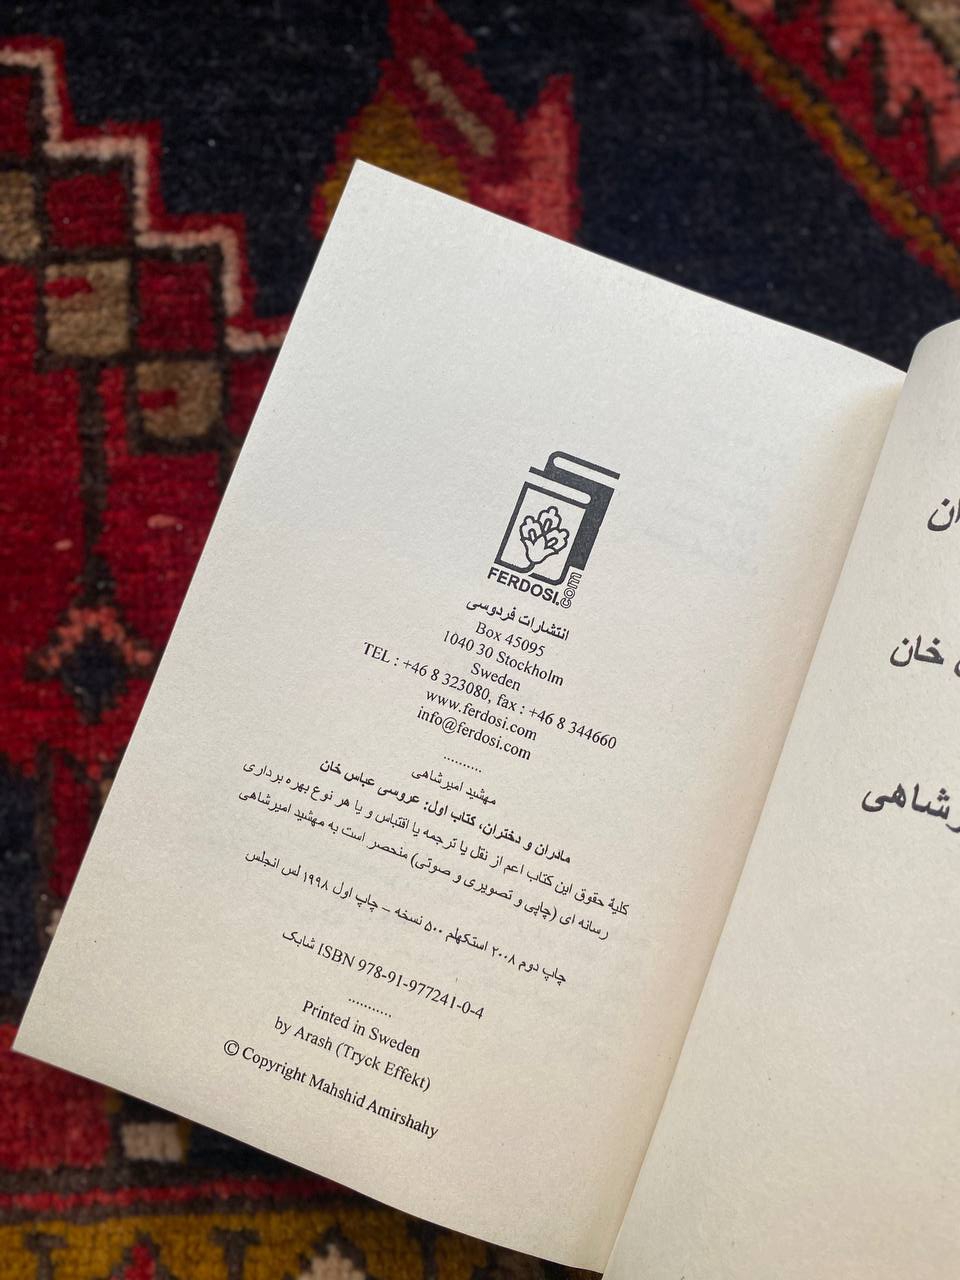 FERDOSI.com
انتشارات فردوسی
Box 45095
1040 30 Stockholm
Sweden
TEL : +46 8 323080, fax : +46 8 344660
www.ferdosi.com
info@ferdosi.com
..........
مهشید امیرشاهی
مادران و دختران، کتاب اول: عروسی عباس خان
کلیهٔ حقوق این کتاب اعم از نقل یا ترجمه یا اقتباس و یا هر نوع بهره برداری
رسانه ای (چاپی و تصویری و صوتی) منحصر است به مهشید امیرشاهی
چاپ دوم ۲۰۰۸ استکهلم ۵۰۰ نسخه – چاپ اول ۱۹۹۸ لس انجلس
شابک ISBN 978-91-977241-0-4
...........
Printed in Sweden
by Arash (Tryck Effekt)
© Copyright Mahshid Amirshahy
خان